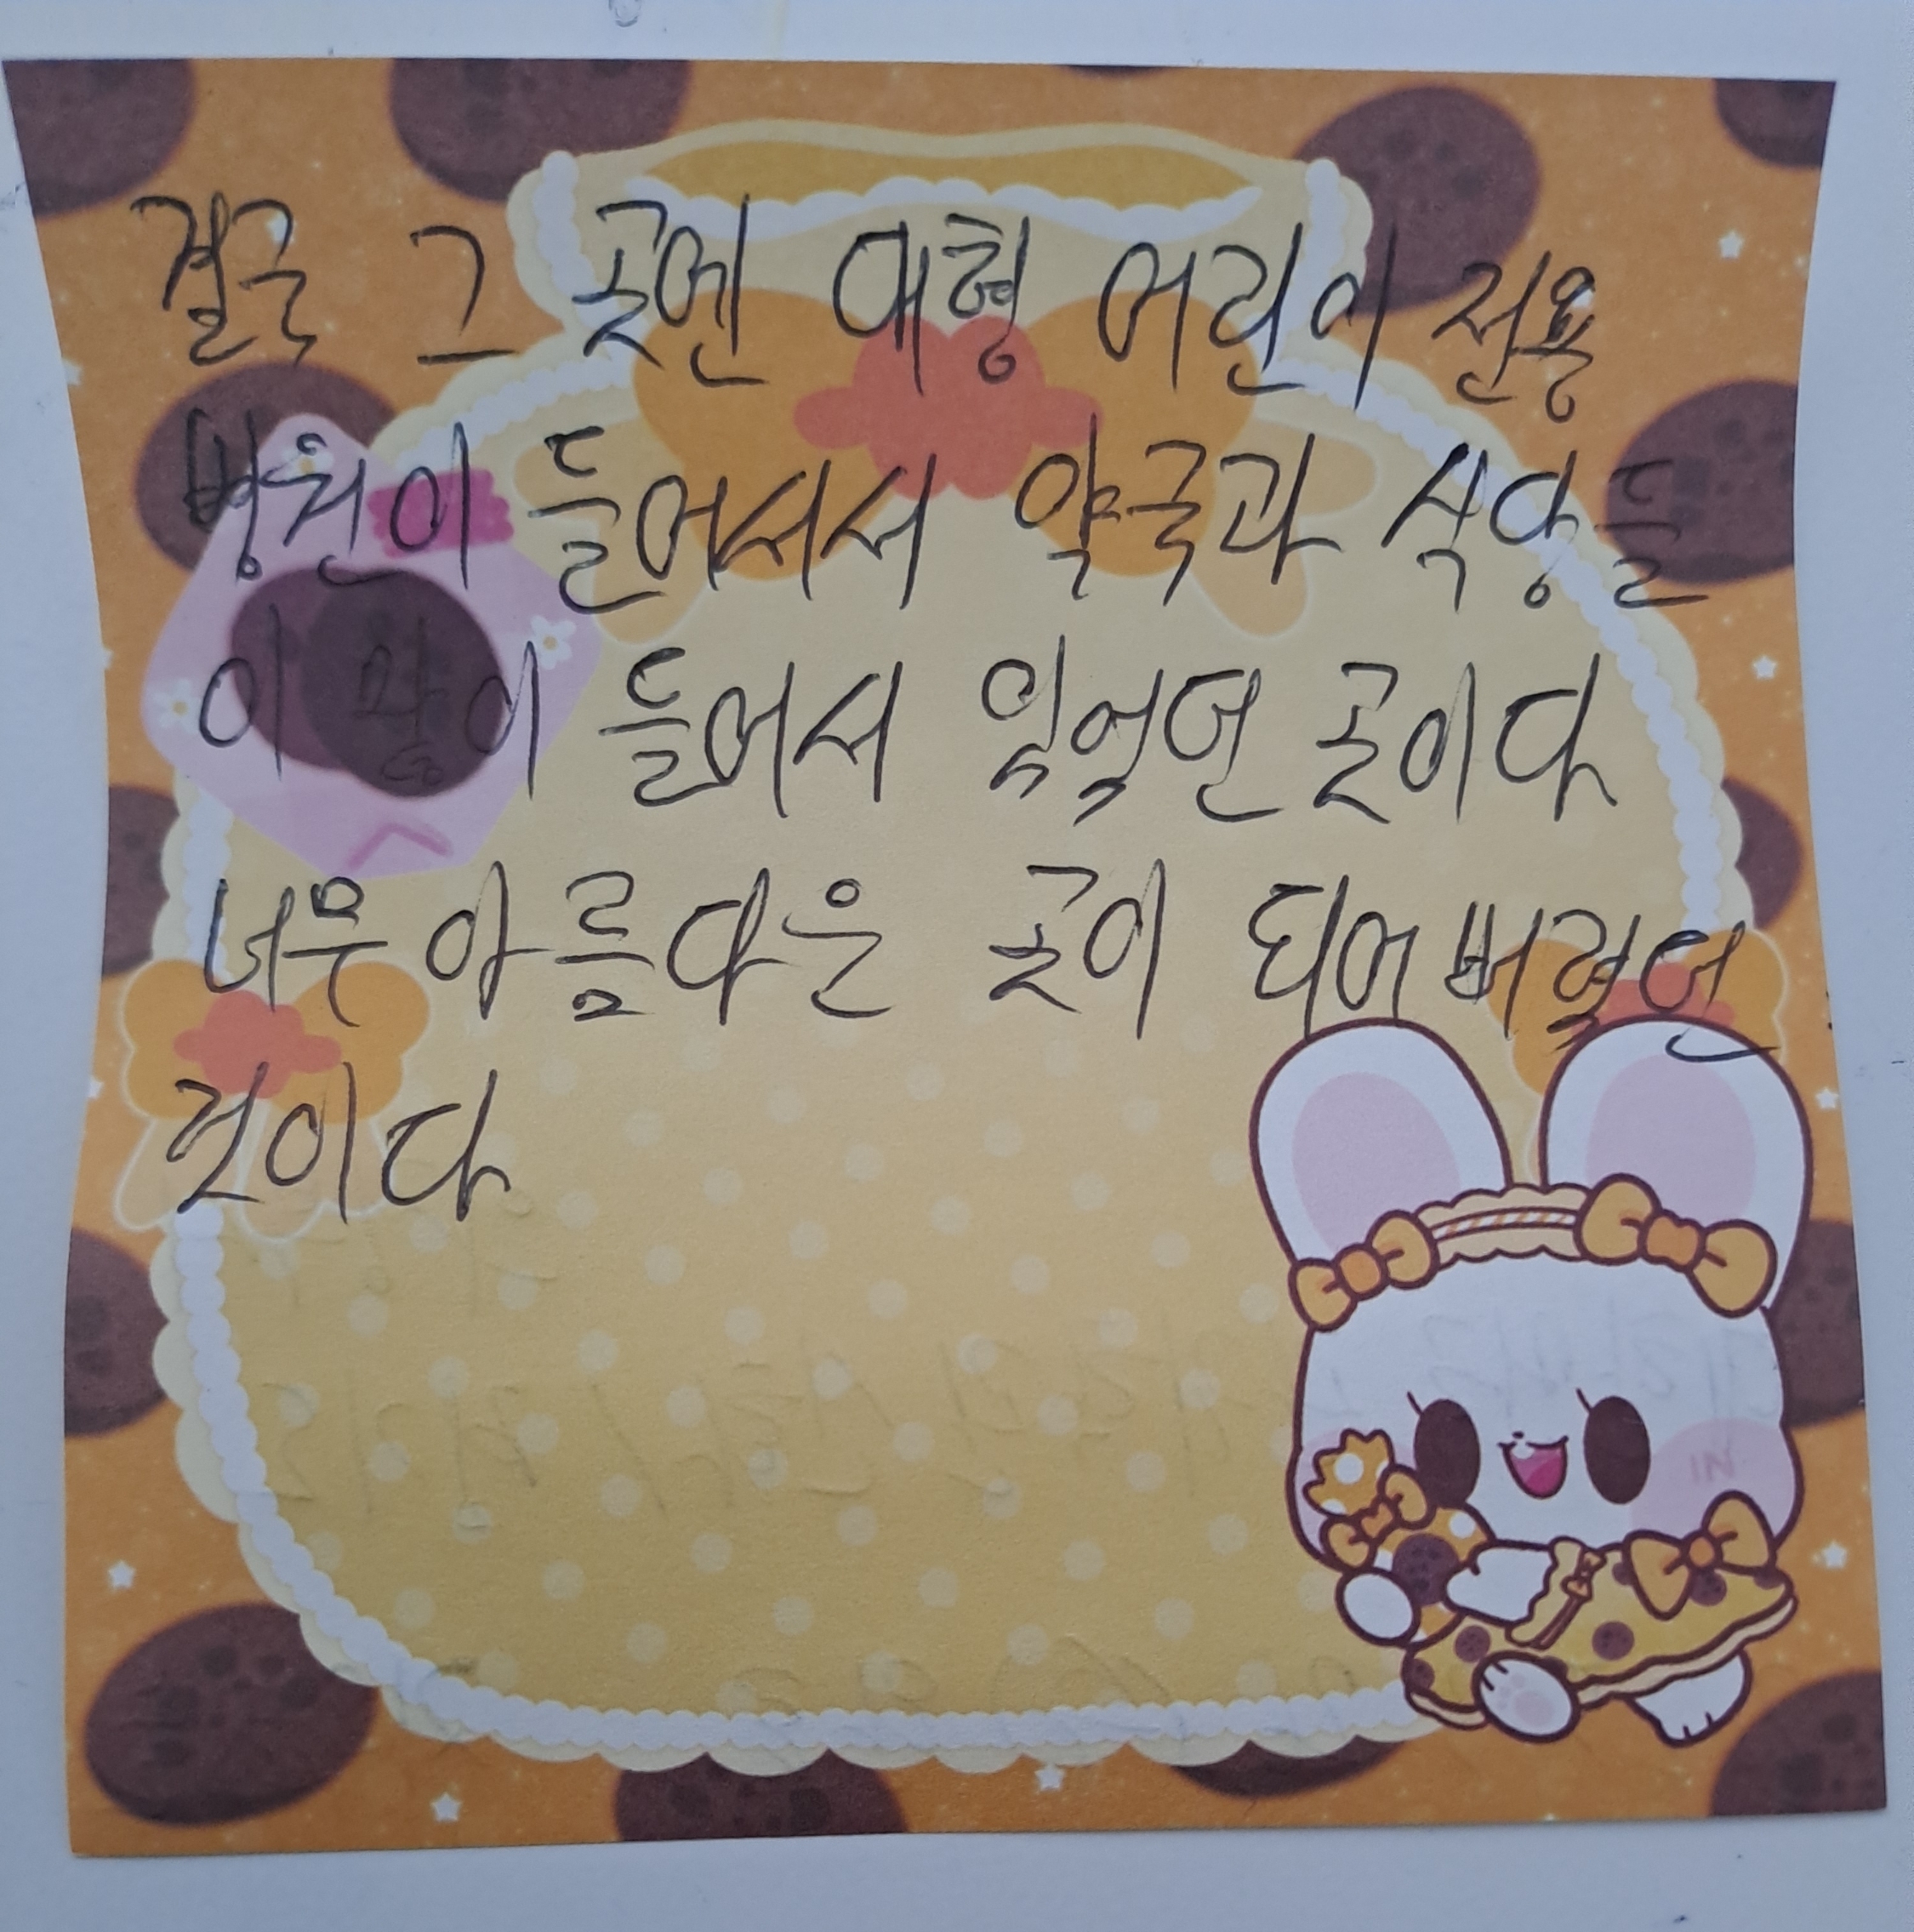 결국 그 곳엔 대형 어린이 전용
병원이 들어서서 약국과 식당들
이 많이 들어서 있었던 곳이다
너무 아름다운 곳이 되어 버렸던
것이다